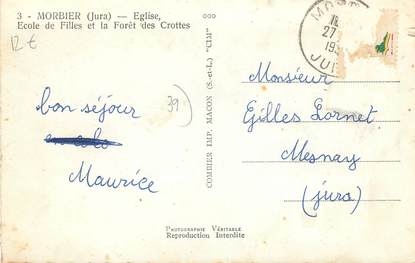 3 - MORBIER (Jura) — Eglise,
Ecole de Filles et la Forêt des Crottes
12 €
bon séjour
en colo
Maurice
39
COMBIER IMP. MACON (S.-et-L.) "CIM"
MOR
27
19
JU
Monsieur
Gilles Pornet
Mesnay
(jura)
PHOTOGRAPHIE VÉRITABLE
Reproduction Interdite